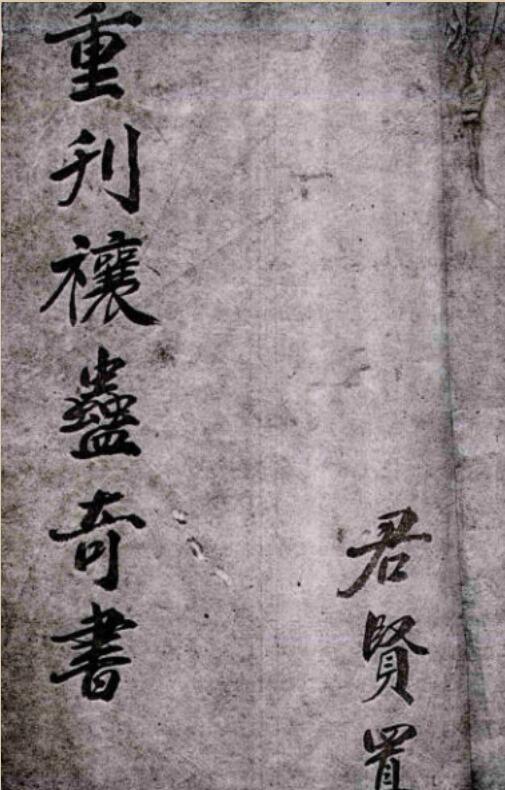 君賢置
重刊禳蠱奇書